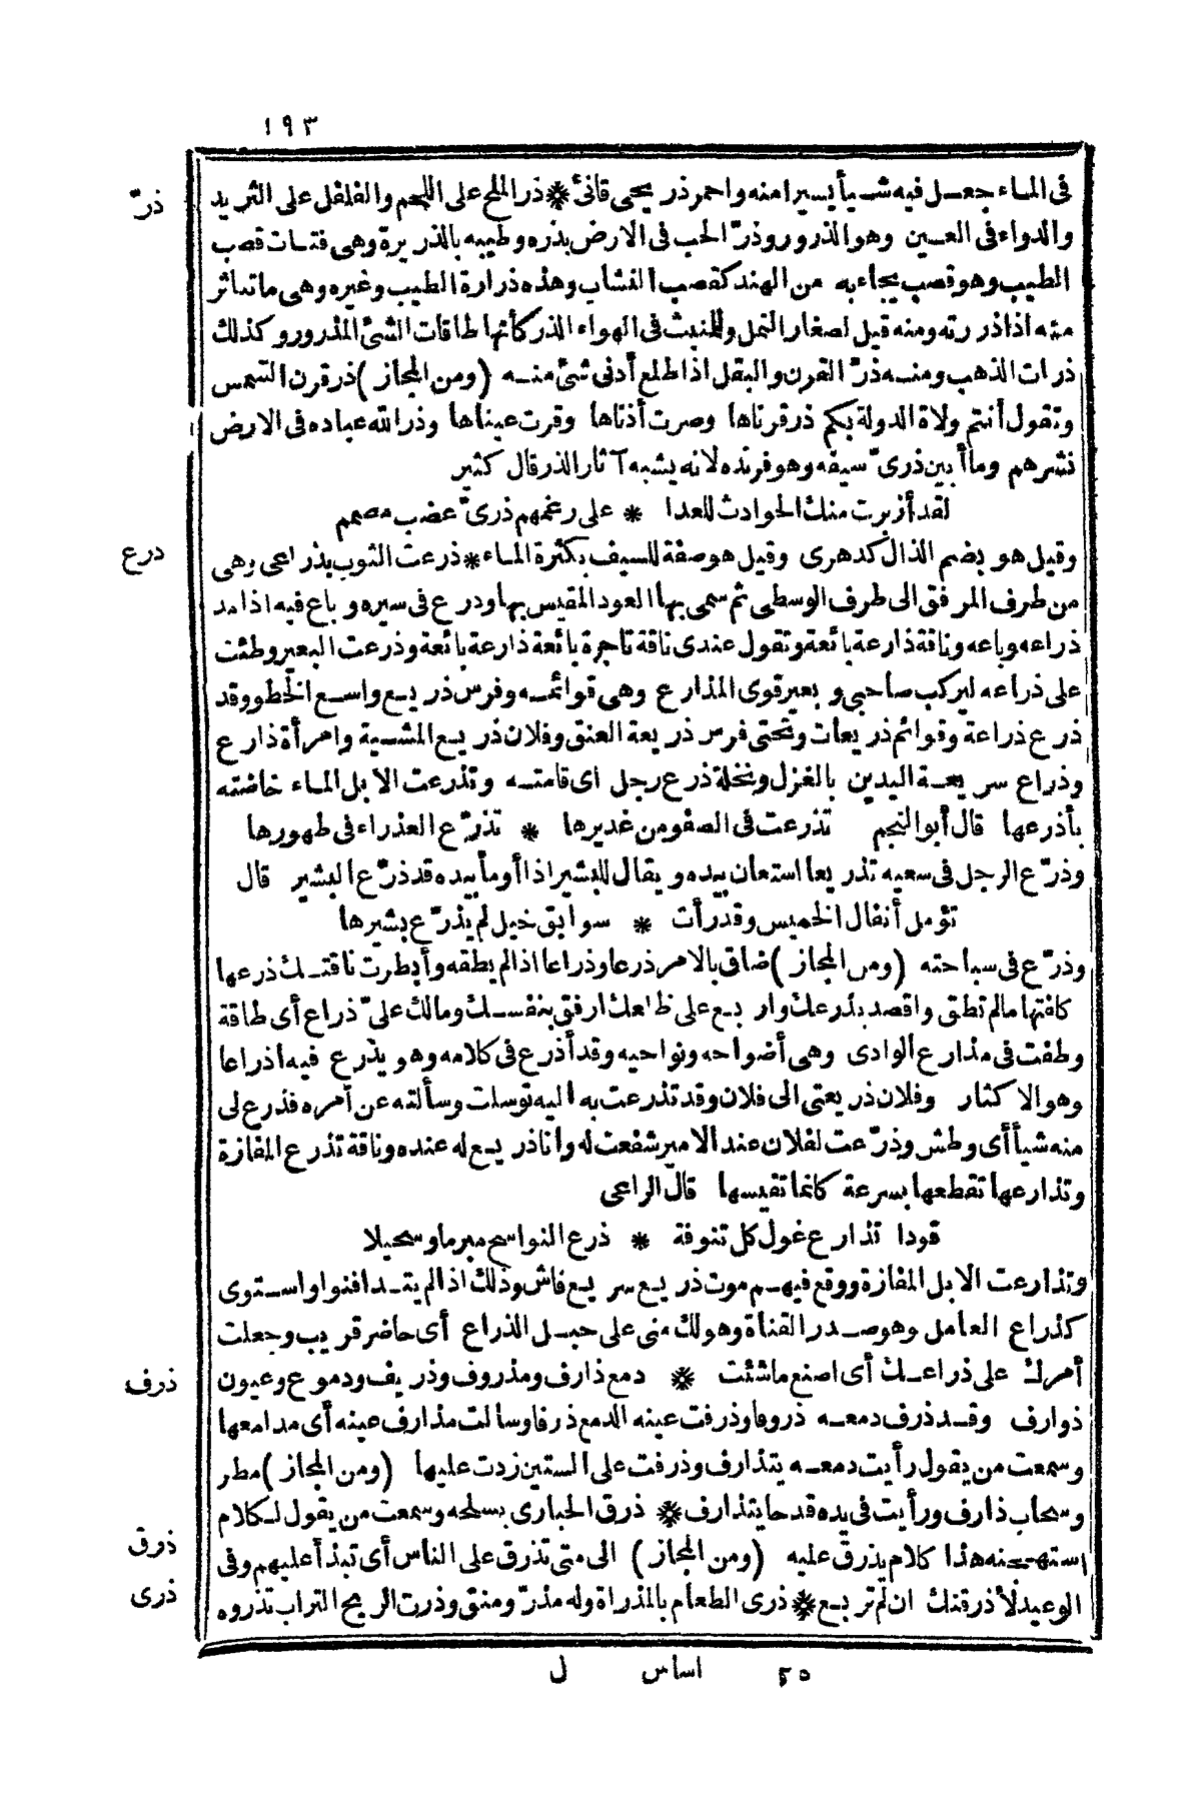 ١٩٣
في الماء جعل فيه شيأ يسيرا منه واحمر ذريحي قانئ * ذر الملح على اللحم والفلفل على الثريد
ذرّ
والدواء في العين وهو الذرور وذرّ الحب في الارض بذره وطيبه بالذريرة وهى فتات قصب
الطيب وهو قصب يجاء به من الهند كقصب النشاب وهذه ذرارة الطيب وغيره وهى ما تناثر
منه اذا ذررته ومنه قيل لصغار النمل وللمنبث في الهواء الذر كأنها طاقات الشئ المذرور وكذلك
ذرات الذهب ومنه ذرّ القرن والبقل اذا طلع أدنى شئ منه (ومن المجاز) ذر قرن الشمس
وتقول أنتم ولاة الدولة بكم ذر قرناها وصرت أذناها وقرت عيناها وذر الله عباده في الارض
نشرهم وما أبين ذرى ّ سيفه وهو فرنده لانه يشبه آثار الذر قال كثير
لقد أزبرت منك الحوادث للعدا * على رغمهم ذرى ّ عضب مصمم
وقيل هو بضم الذال كدهرى وقيل هو صفة للسيف بكثرة الماء * ذرعت الثوب بذراعى وهى
درع
من طرف المرفق الى طرف الوسطى ثم سمى بها العود المقيس بها وذرع في سيره وباع فيه اذا مد
ذراعه وباعه وناقة ذارعة بائعة وتقول عندى ناقة تاجرة بائعة ذارعة بائعة وذرعت البعير وطئت
على ذراعه ليركب صاحبي وبعير قوى المذارع وهى قوائمه وفرس ذريع واسع الخطو وقد
ذرع ذراعة وقوائم ذريعات وتحتى فرس ذريعة العنق وفلان ذريع المشية وامرأة ذارع
وذراع سريعة اليدين بالغزل ونخلة ذرع رجل اى قامته وتذرعت الابل الماء خاضته
بأذرعها قال أبو النجم تذرعت في الصفو من غديرها * تذرّع العذراء في طهورها
وذرّع الرجل في سعيه تذريعا استعان بيده ويقال للبشير اذا أومأ بيده قد ذرّع البشير قال
تؤمل أنفال الخميس وقد رأت * سوابق خيل لم يذرّع بشيرها
وذرّع في سباحته (ومن المجاز) ضاق بالامر ذرعا وذراعا اذا لم يطقه وأبطرت ناقتك ذرعها
كافتها ما لم تطق واقصد بذرعك واربع على ظلعك ارفق بنفسك ومالك علىّ ذراع أى طاقة
وطفت في مذارع الوادى وهى أضواحه ونواحيه وقد أذرع في كلامه وهو يذرع فيه اذراعا
وهو الاكثار وفلان ذريعتى الى فلان وقد تذرعت به اليه توسلت وسألته عن أمره فذرع لى
منه شيأ أى وطش وذرّعت لفلان عند الامير شفعت له وانا ذريع له عنده وناقة تذرع المفازة
وتذارعها تقطعها بسرعة كانما تقيسها قال الراعى
قودا تذارع غول كل تنوفة * ذرع النواسج مبرما وسحيلا
وتذارعت الابل المفازة ووقع فيهم موت ذريع سريع فاش وذلك اذا لم يتدافنوا واستوى
كذراع العامل وهو صدر القناة وهو لك منى على حبل الذراع أى حاضر قريب وجعلت
أمرك على ذراعك أى اصنع ما شئت * دمع ذارف ومذروف وذريف ودموع وعيون
ذرف
ذوارف وقد ذرف دمعه ذروفا وذرفت عينه الدمع ذرفا وسالت مذارف عينه أى مدامعها
وسمعت من يقول رأيت دمعه يتذارف وذرفت على الستين زدت عليها (ومن المجاز) مطر
وسحاب ذارف ورأيت في يده قدحا يتذارف * ذرق الحبارى بسلحه وسمعت من يقول لكلام
ذرق
استهجنه هذا كلام يذرق عليه (ومن المجاز) الى متى تذرق على الناس أى تبذأ عليهم وفى
الوعيد لأذرقنك ان لم تربع * ذرى الطعام بالمذراة وله مذرّ ومنق وذرت الريح التراب تذروه
ذرى
٢٥ اساس ل